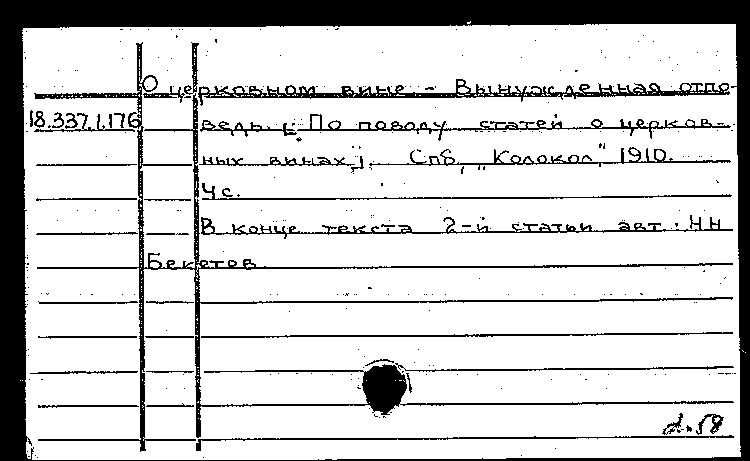 О церковном вине. - Вынужденная отпо-
18.337.1.176 ведь. [По поводу статей о церков-
ных винах]. Спб, "Колокол", 1910.
4 с.
В конце текста 2-й статьи авт.: НН
Бекетов.
d.58